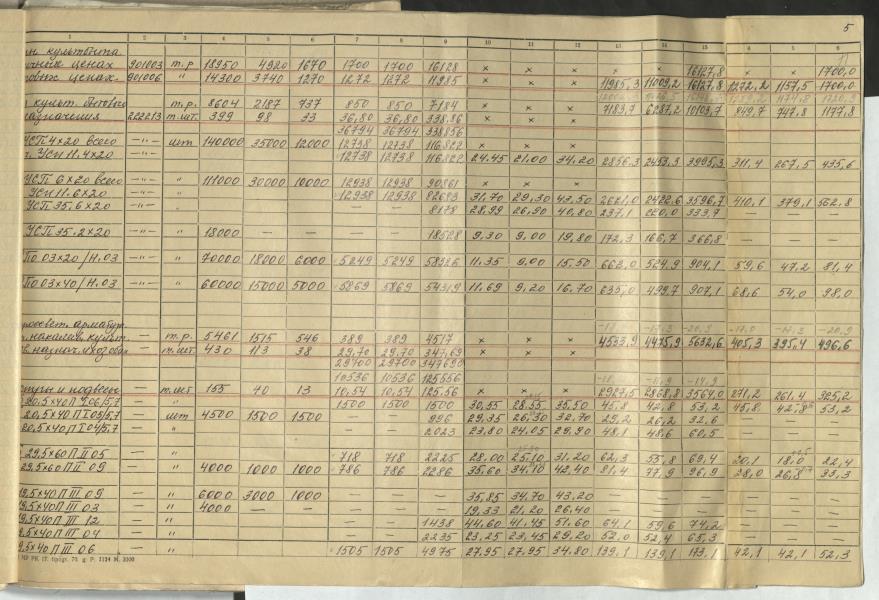 5
1 2 3 4 5 6 7 8 9 10 11 12 13 14 15 4 5 6
культбыта
ценах 901003 т.р. 18950 4920 1670 1700 1700 16128 × × × 16127,8 1700,0
ценах. 901006 " 14300 3740 1270 1272 1272 11985 × × × 11985,3 11009,2 16127,8 1272,2 1157,5 1700,0
культ. бытового т.р. 8604 2187 737 850 850 7184 × × × 7183,7 6287,2 10103,7 849,7 747,8 1177,8
назначения 222213 т.шт. 399 98 33 36,80 36,80 338,86
36794 36794 338856
УСП 4х20 всего —"— шт 140000 35000 12000 12738 12738 116822 × × ×
УСП 11.4х20 —"— 12738 12738 116822 24.45 21,00 34,20 2856.3 2453,3 3995,3 311,4 267,5 435,6
УСП 6х20 всего —"— " 111000 30000 10000 12938 12938 90861 × × ×
УСП 11.6х20 —"— 12938 12938 82683 31,70 29,30 43,50 2621,0 2422,6 3596,7 410,1 379,1 562,8
УСП 35.6х20 —"— — — 8178 28,99 26,90 40,80 237,1 220,0 333,7 — — —
УСП 35.2х20 —"— " 18000 — — — — 18528 9,30 9,00 19,80 172,3 166,7 366,8 — — —
ПО 03х20/Н.03 —"— " 70000 18000 6000 5249 5249 58326 11.35 9,00 15.50 662,0 524,9 904,1 59,6 47.2 81,4
ПО 03х40/Н.03 —"— " 60000 15000 5000 5869 5869 54319 11,69 9,20 16,70 635,0 499,7 907,1 68,6 54,0 98,0
арматур.
культ. — т.р. 5461 1515 546 389 389 4517 × × × 4533,9 4475,9 5632,6 405,3 395,4 496,6
назнач. и хозобих — т.шт. 430 113 38 29,70 29,70 347,69 × × ×
29700 29700 347690
10536 10536 125556
и подвесы — т.шт 155 40 13 10,54 10,54 125,56 × × × 2927,5 2868,8 3564,0 271,2 261,4 325,2
— " 1500 1500 1500 30,55 28.55 35,50 45,8 42,8 53,2 45,8 42,8 53,2
— шт 4500 1500 1500 — — 996 29,35 26,30 32,70 29,2 26,2 32,6
— " 2023 23,80 24.05 29,90 48,1 48,6 60,5
29,5х60 П II 05 — " 718 718 2225 28,00 25.10 31,20 62,3 55,8 69,4 20,1 18,0 22,4
29,5х60 П II 09 — " 4000 1000 1000 786 786 2286 35,60 34,10 42,40 81,4 77,9 96,9 28,0 26,8 33,3
29,5х40 П III 09 — " 6000 3000 1000 35,85 34.70 43,20 — — — — — —
29,5х40 П III 03 — " 4000 — — 19,33 21,20 26,40 — — — — — —
29,5х40 П III 12 — " — — 1438 44,60 41,45 51,60 64,1 59,6 74,2 — — —
29,5х40 П III 04 — — — 2235 23,25 23,45 29,20 52,0 52,4 65,3 — — —
29,5х40 П III 06 — " 1505 1505 4975 27,95 27,95 34.80 139,1 139,1 173,1 42,1 42,1 52,3